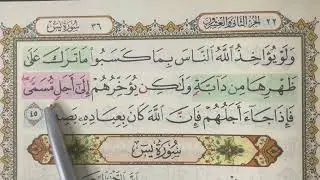 الجزء الثاني والعشرون ٢٢
٣٦ سورة يس
وَلَوْ يُؤَاخِذُ اللَّهُ النَّاسَ بِمَا كَسَبُوا مَا تَرَكَ عَلَىٰ
ظَهْرِهَا مِن دَابَّةٍ وَلَٰكِن يُؤَخِّرُهُمْ إِلَىٰ أَجَلٍ مُّسَمًّى
فَإِذَا جَاءَ أَجَلُهُمْ فَإِنَّ اللَّهَ كَانَ بِعِبَادِهِ بَصِيرًا ٤٥
سورة يس